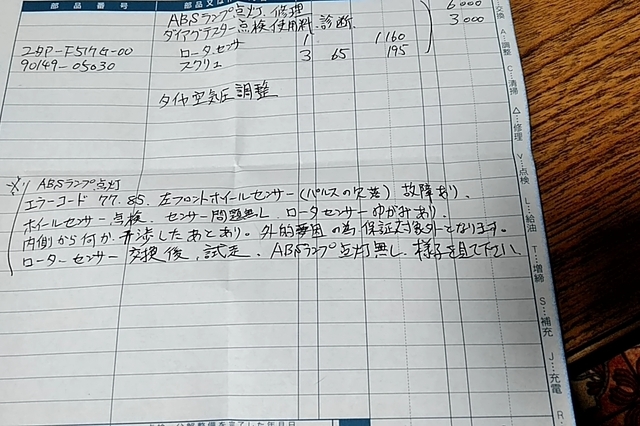 部品番号
ABSランプ点灯、修理 6000
ダイアグテスター点検使用料、診断. 3,000
2dP-F517G-00 ローターセンサ 1 1160
90149-05030 スクリュ 3 65 195
タイヤ空気圧調整
※ ABSランプ点灯
エラーコード 77.85. 左フロントホイールセンサー(パルスの欠落)故障あり、
ホイールセンサー点検、センサー問題無し、ロータセンサーゆがみあり、
内側から何か干渉したあとあり。外的要因の為保証対象外となります。
ローターセンサー交換後、試走、ABSランプ点灯無し、様子を見て下さい、
交換
A…調整
C…清掃
△…修理
V…点検
L…給油
T…増締
S…補充
J…充電
R